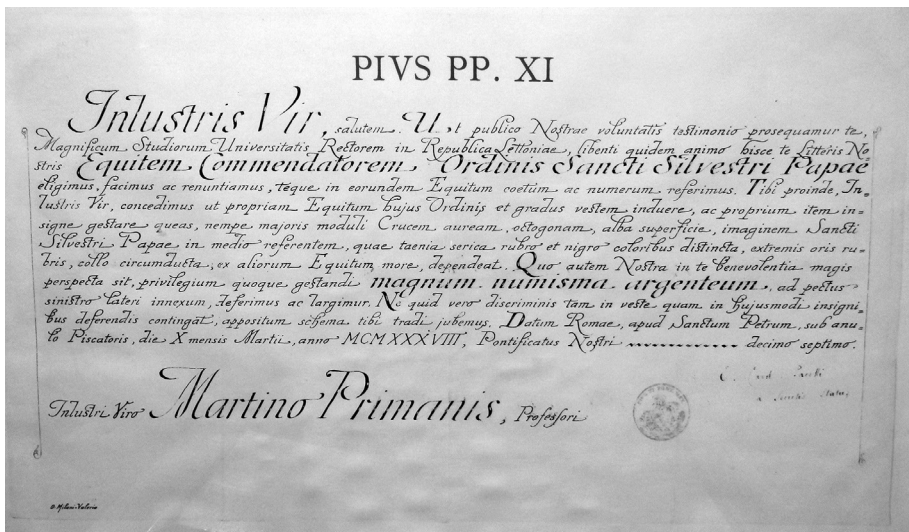 PIVS PP. XI
Inlustris Vir, salutem. Ut publico Nostrae voluntatis testimonio prosequamur te,
Magnificum Studiorum Universitatis Rectorem in Republica Lettoniae, libenti quidem animo hisce te Litteris No
stris Equitem Commendatorem Ordinis Sancti Silvestri Papae
eligimus, facimus ac renuntiamus, teque in eorundem Equitum coetum ac numerum referimus. Tibi proinde, In=
lustris Vir, concedimus ut propriam Equitum hujus Ordinis et gradus vestem induere, ac proprium item in=
signe gestare queas, nempe majoris moduli Crucem auream, octogonam, alba superficie, imaginem Sancti
Silvestri Papae in medio referentem, quae taenia serica rubro et nigro coloribus distincta, extremis oris ru=
bris, collo circumducta, ex aliorum Equitum more, dependeat. Quo autem Nostra in te benevolentia magis
perspecta sit, privilegium quoque gestandi magnum numisma argenteum, ad pectus
sinistro lateri innexum, deferimus ac largimur. Ne quid vero discriminis tam in veste quam in hujusmodi insigni
bus deferendis contingat, appositum schema tibi tradi jubemus. Datum Romae, apud Sanctum Petrum, sub anu=
lo Piscatoris, die X mensis Martii, anno MCMXXXVIII, Pontificatus Nostri decimo septimo.
Inlustri Viro Martino Primanis, Professori